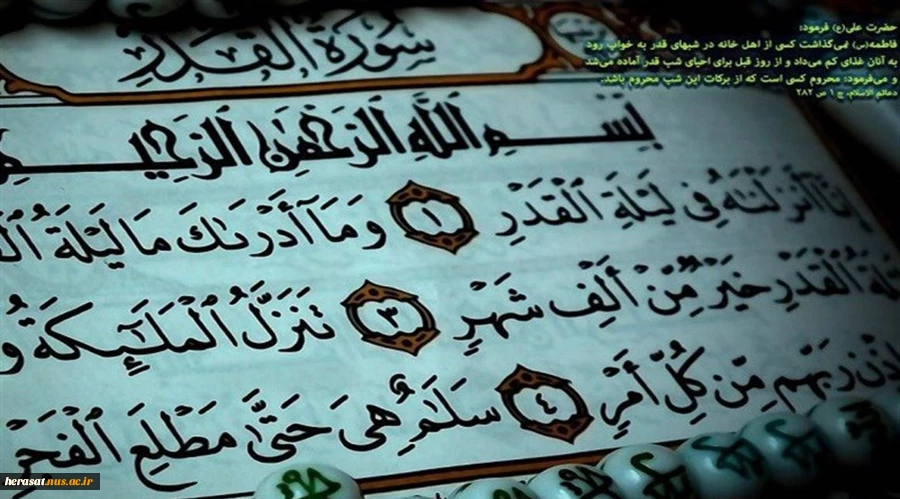 حضرت علی(ع) فرمود:
فاطمه(س) نمی‌گذاشت کسی از اهل خانه در شبهای قدر به خواب رود
به آنان غذای کم می‌داد و از روز قبل برای احیای شب قدر آماده می‌شد
و می‌فرمود: محروم کسی است که از برکات این شب محروم باشد.
دعائم الاسلام، ج ۱ ص ۲۸۲
سُورَةُ الۡقَدۡرِ
بِسۡمِ ٱللَّهِ ٱلرَّحۡمَٰنِ ٱلرَّحِيمِ
إِنَّآ أَنزَلۡنَٰهُ فِي لَيۡلَةِ ٱلۡقَدۡرِ ١ وَمَآ أَدۡرَىٰكَ مَا لَيۡلَةُ
ٱلۡقَدۡرِ خَيۡرٞ مِّنۡ أَلۡفِ شَهۡرٖ ٣ تَنَزَّلُ ٱلۡمَلَٰٓئِكَةُ وَ
رَبِّهِم مِّن كُلِّ أَمۡرٖ ٤ سَلَٰمٌ هِيَ حَتَّىٰ مَطۡلَعِ ٱلۡفَجۡرِ
herasat.nus.ac.ir